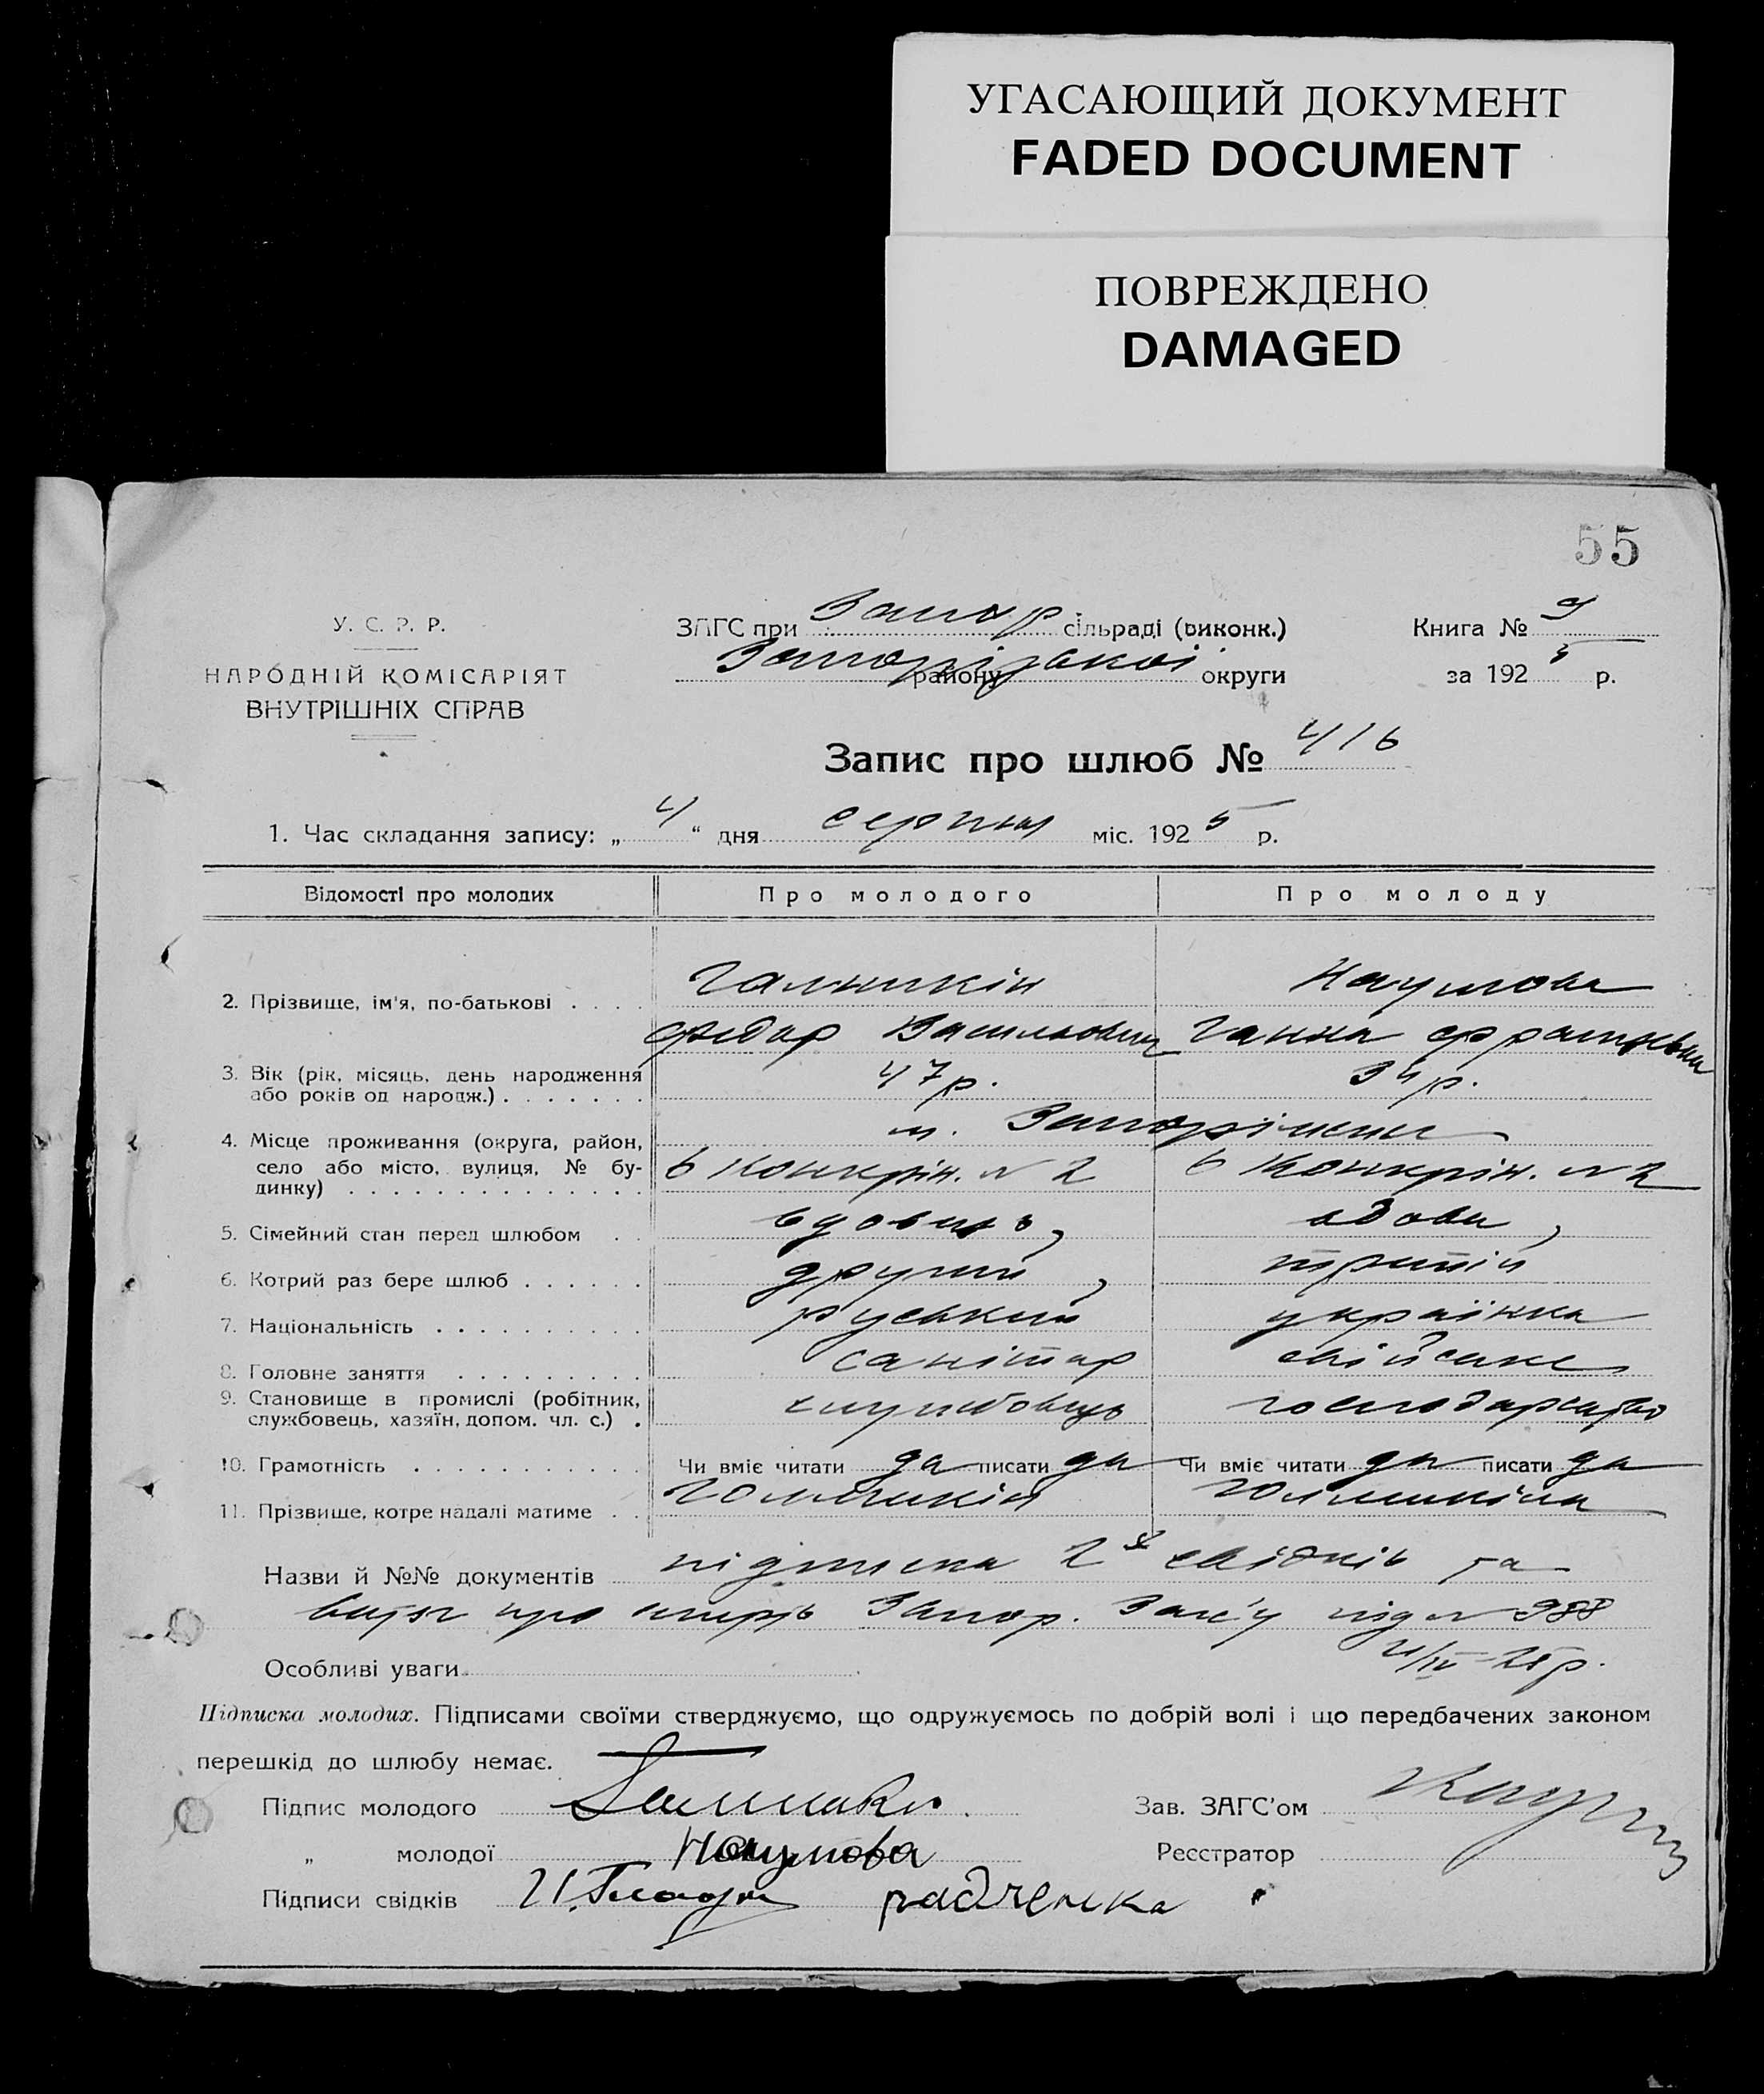 УГАСАЮЩИЙ ДОКУМЕНТ
FADED DOCUMENT
ПОВРЕЖДЕНО
DAMAGED
55
У. С. Р. Р.
НАРОДНІЙ КОМІСАРІЯТ
ВНУТРІШНІХ СПРАВ
ЗАГС при Запор сільраді (виконк.)
району Запорізької округи
Книга №
за 1925 р.
Запис про шлюб № 416
1. Час складання запису: „4“ дня серпня міс. 1925 р.
Відомості про молодих Про молодого Про молоду
2. Прізвище, ім'я, по-батькові . . . . Наумова
Федор Васильович Ганна
3. Вік (рік, місяць, день народження
або років од народж.) . . . . . . . 47 р. 34 р.
4. Місце проживання (округа, район, м. Запоріжжя
село або місто, вулиця, № бу-
динку) . . . . . . . . . . . . . . № 2 № 2
5. Сімейний стан перед шлюбом . . вдовець, вдова,
6. Котрий раз бере шлюб . . . . . . другий, третій
7. Національність . . . . . . . . . . руський українка
8. Головне заняття . . . . . . . . . санітар хатнє
9. Становище в промислі (робітник,
службовець, хазяїн, допом. чл. с.) . службовець господарство
10. Грамотність . . . . . . . . . . . Чи вміє читати да писати да Чи вміє читати да писати да
11. Прізвище, котре надалі матиме . .
Назви й №№ документів підписка 2х свідків та
витяг про смерть Запор. Загс'у під № 988
Особливі уваги
Підписка молодих. Підписами своїми стверджуємо, що одружуємось по добрій волі і що передбачених законом
перешкід до шлюбу немає.
Підпис молодого
Зав. ЗАГС'ом
„ молодої Наумова
Реєстратор
Підписи свідків радченка